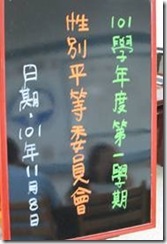 101學年度第一學期
性別平等委員會
日期：101年11月8日